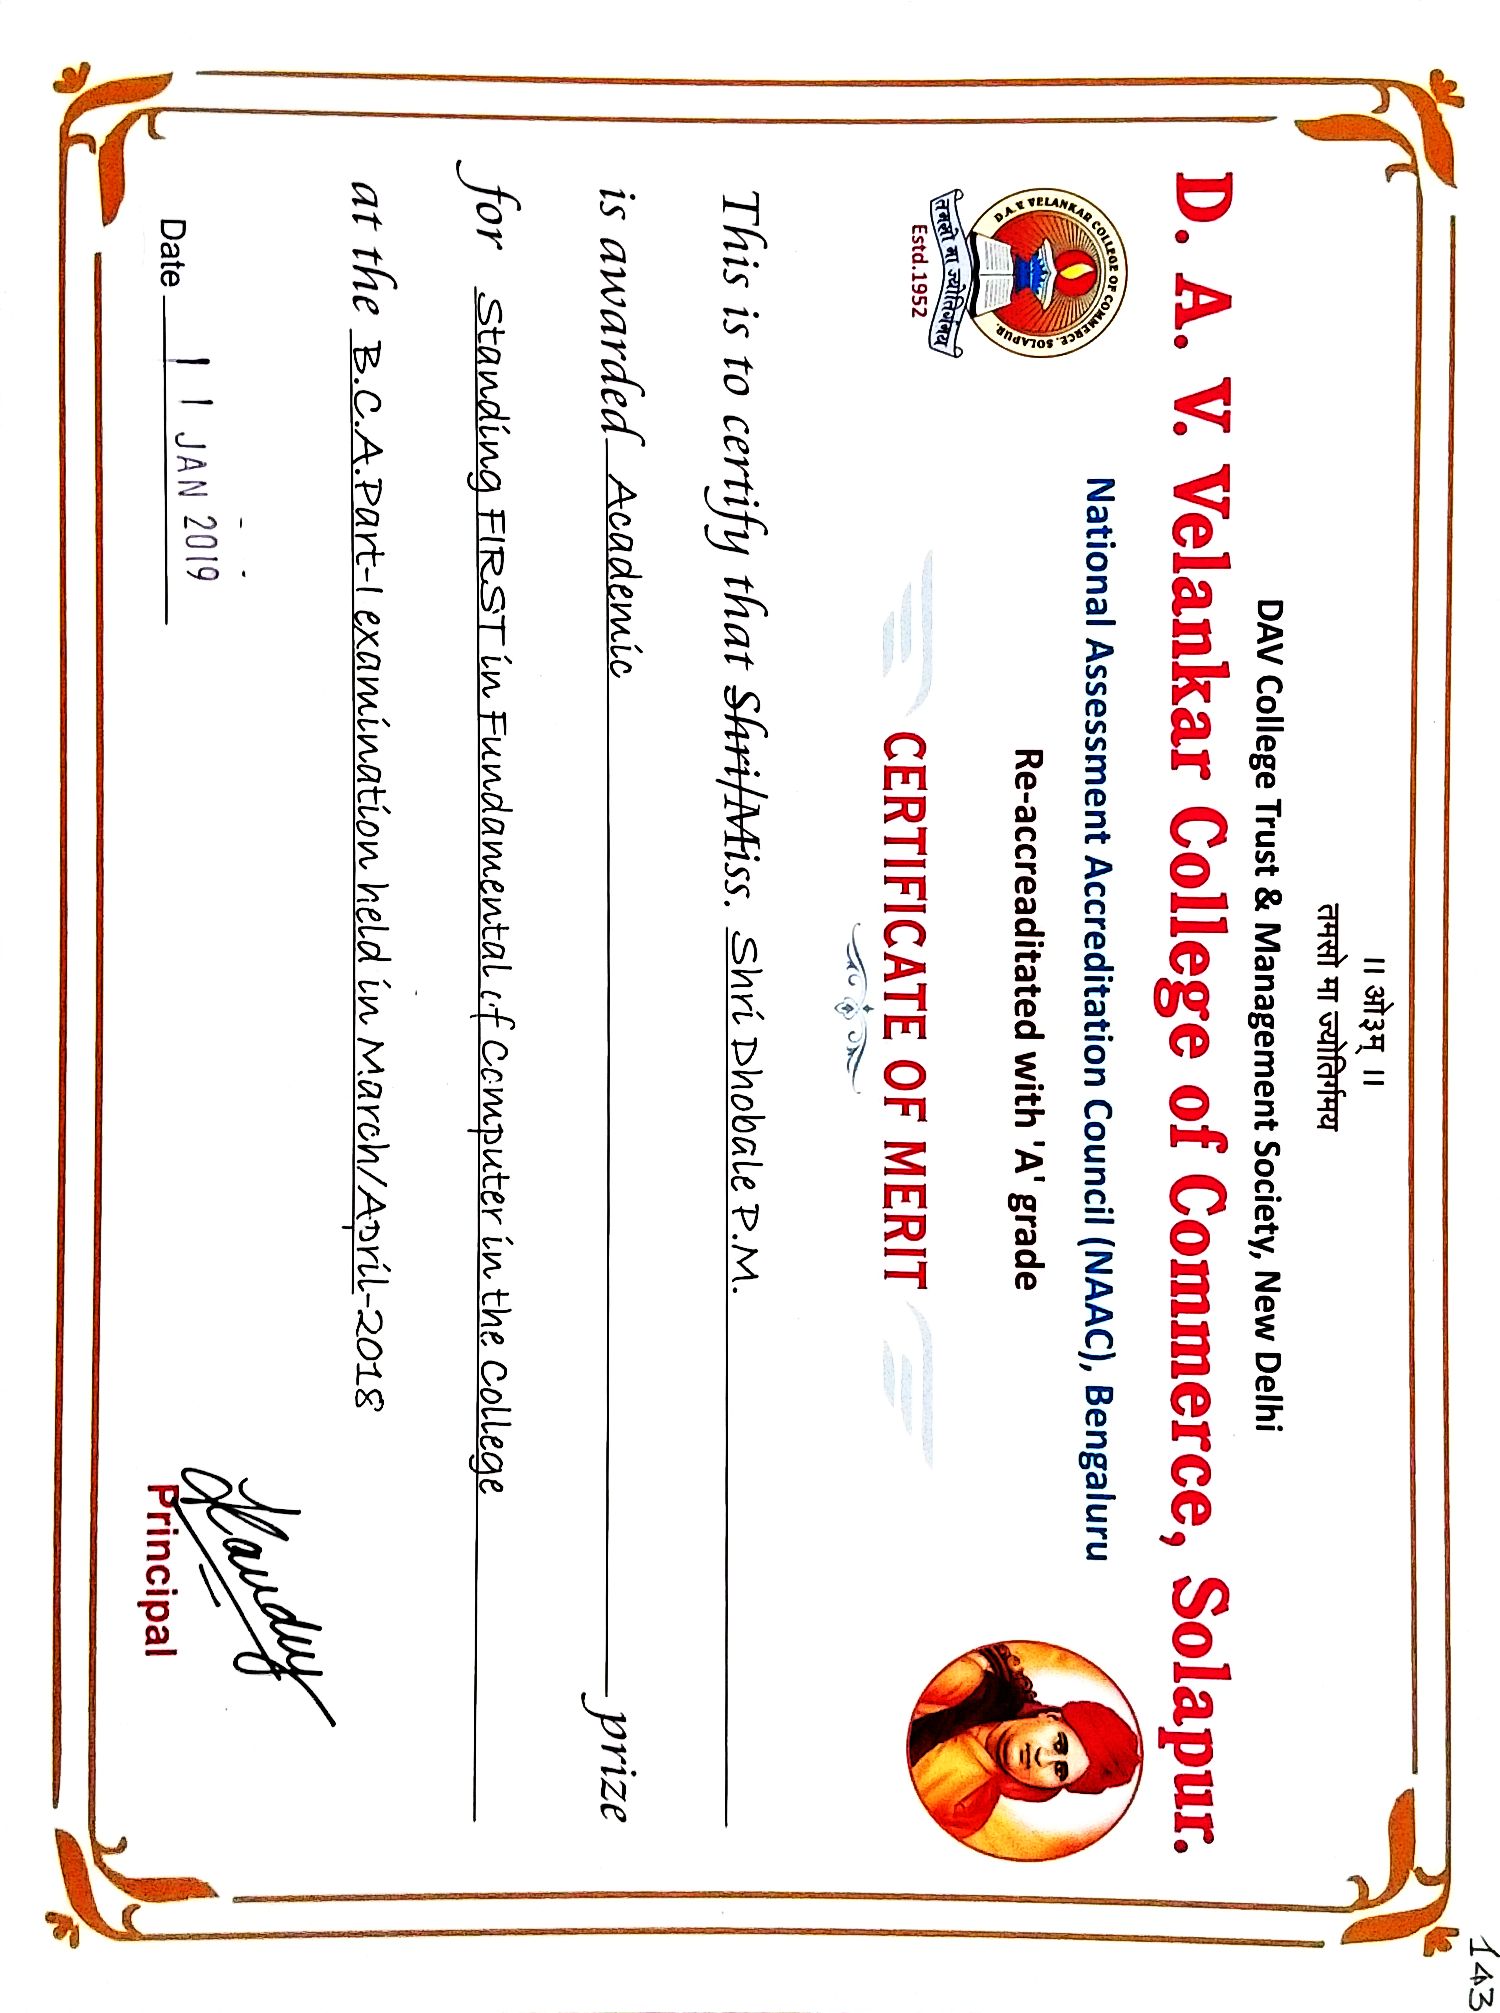 143
॥ ओ३म् ॥
तमसो मा ज्योतिर्गमय
DAV College Trust & Management Society, New Delhi
D. A. V. Velankar College of Commerce, Solapur.
D.A.V. VELANKAR COLLEGE OF COMMERCE. SOLAPUR.
तमसो मा ज्योतिर्गमय
Estd.1952
National Assessment Accreditation Council (NAAC), Bengaluru
Re-accreaditated with 'A' grade
CERTIFICATE OF MERIT
This is to certify that Shri/Miss. Shri Dhobale P.M.
is awarded Academic prize
for Standing FIRST in Fundamental of Computer in the College
at the B.C.A.Part-I examination held in March/April-2018
Date 11 JAN 2019
Principal